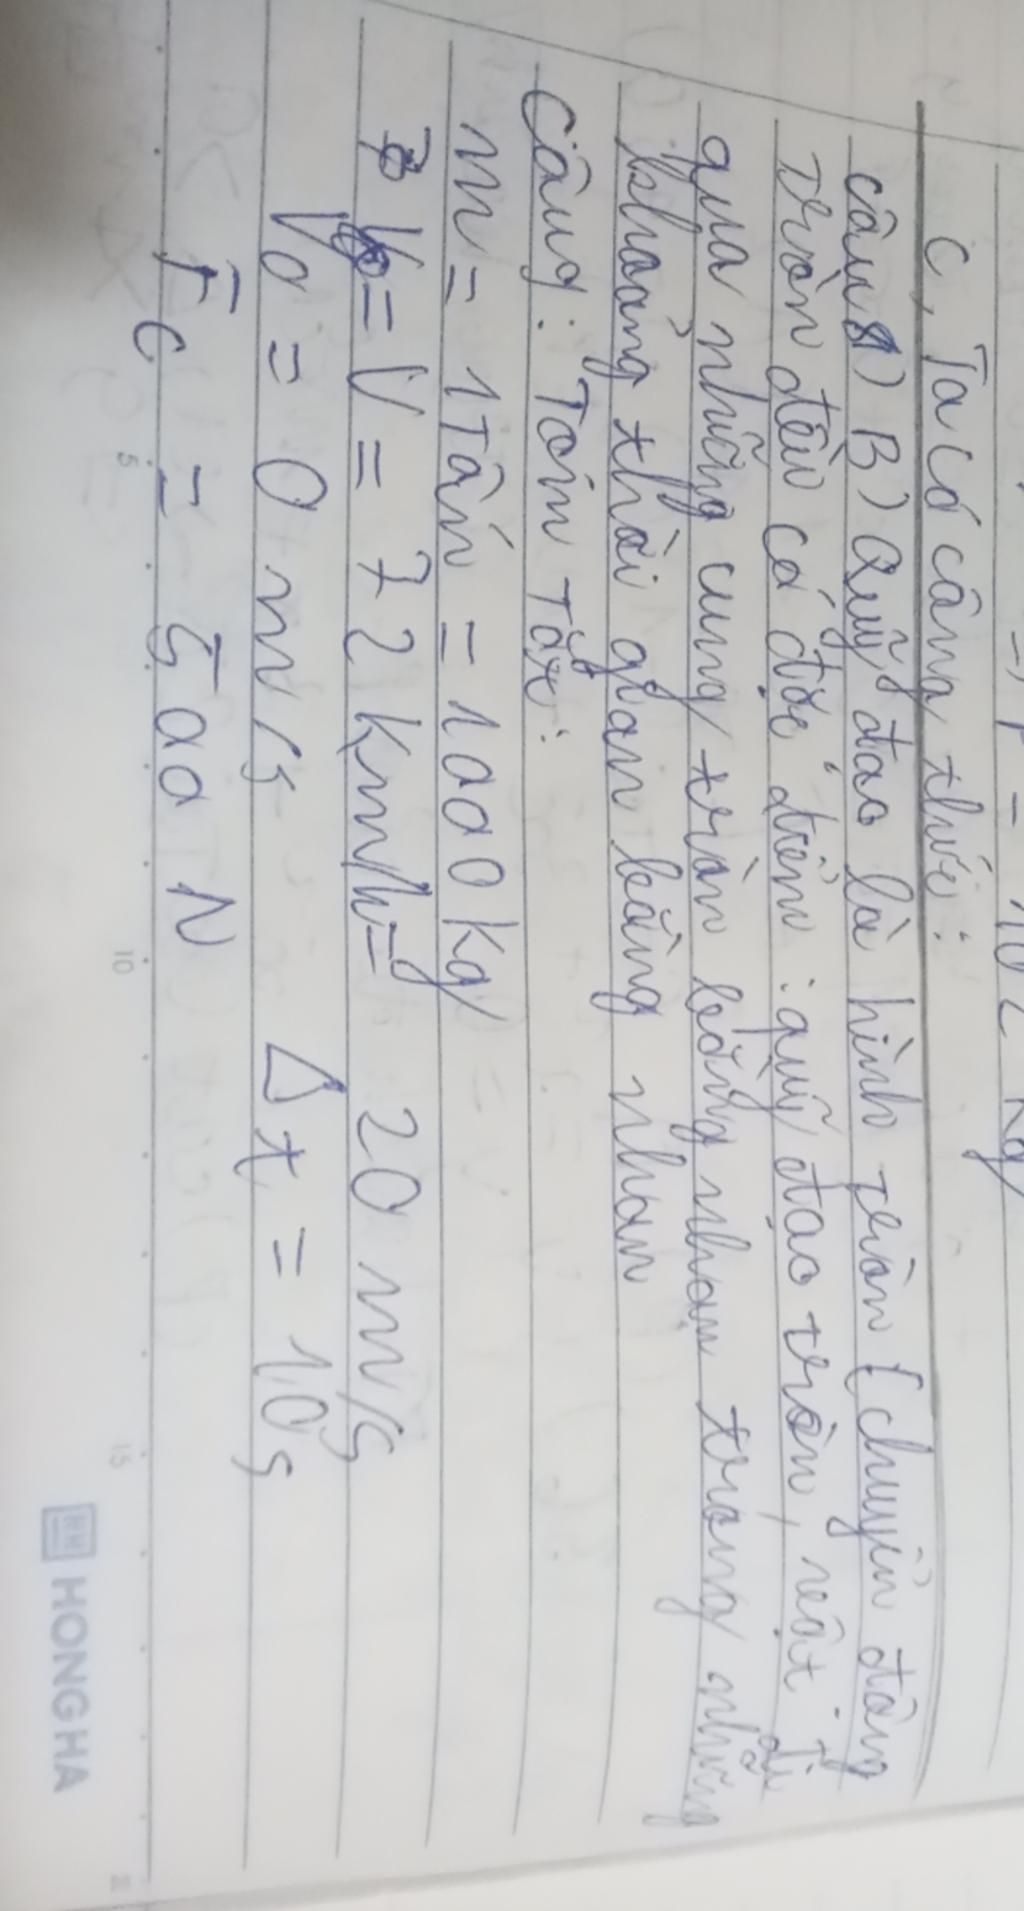 → P = 102 kg
C, Ta có công thức:
câu 8) B) Quỹ đạo là hình tròn (chuyển động
tròn đều có đặc điểm: quỹ đạo tròn, vật đi
qua những cung tròn bằng nhau trong những
khoảng thời gian bằng nhau
Câu 9: Tóm tắt:
m = 1 Tấn = 1000 kg
V = 72 km/h = 20 m/s
Vo = 0 m/s Δt = 10s
Fc = 500 N
5 10 15
HONG HA